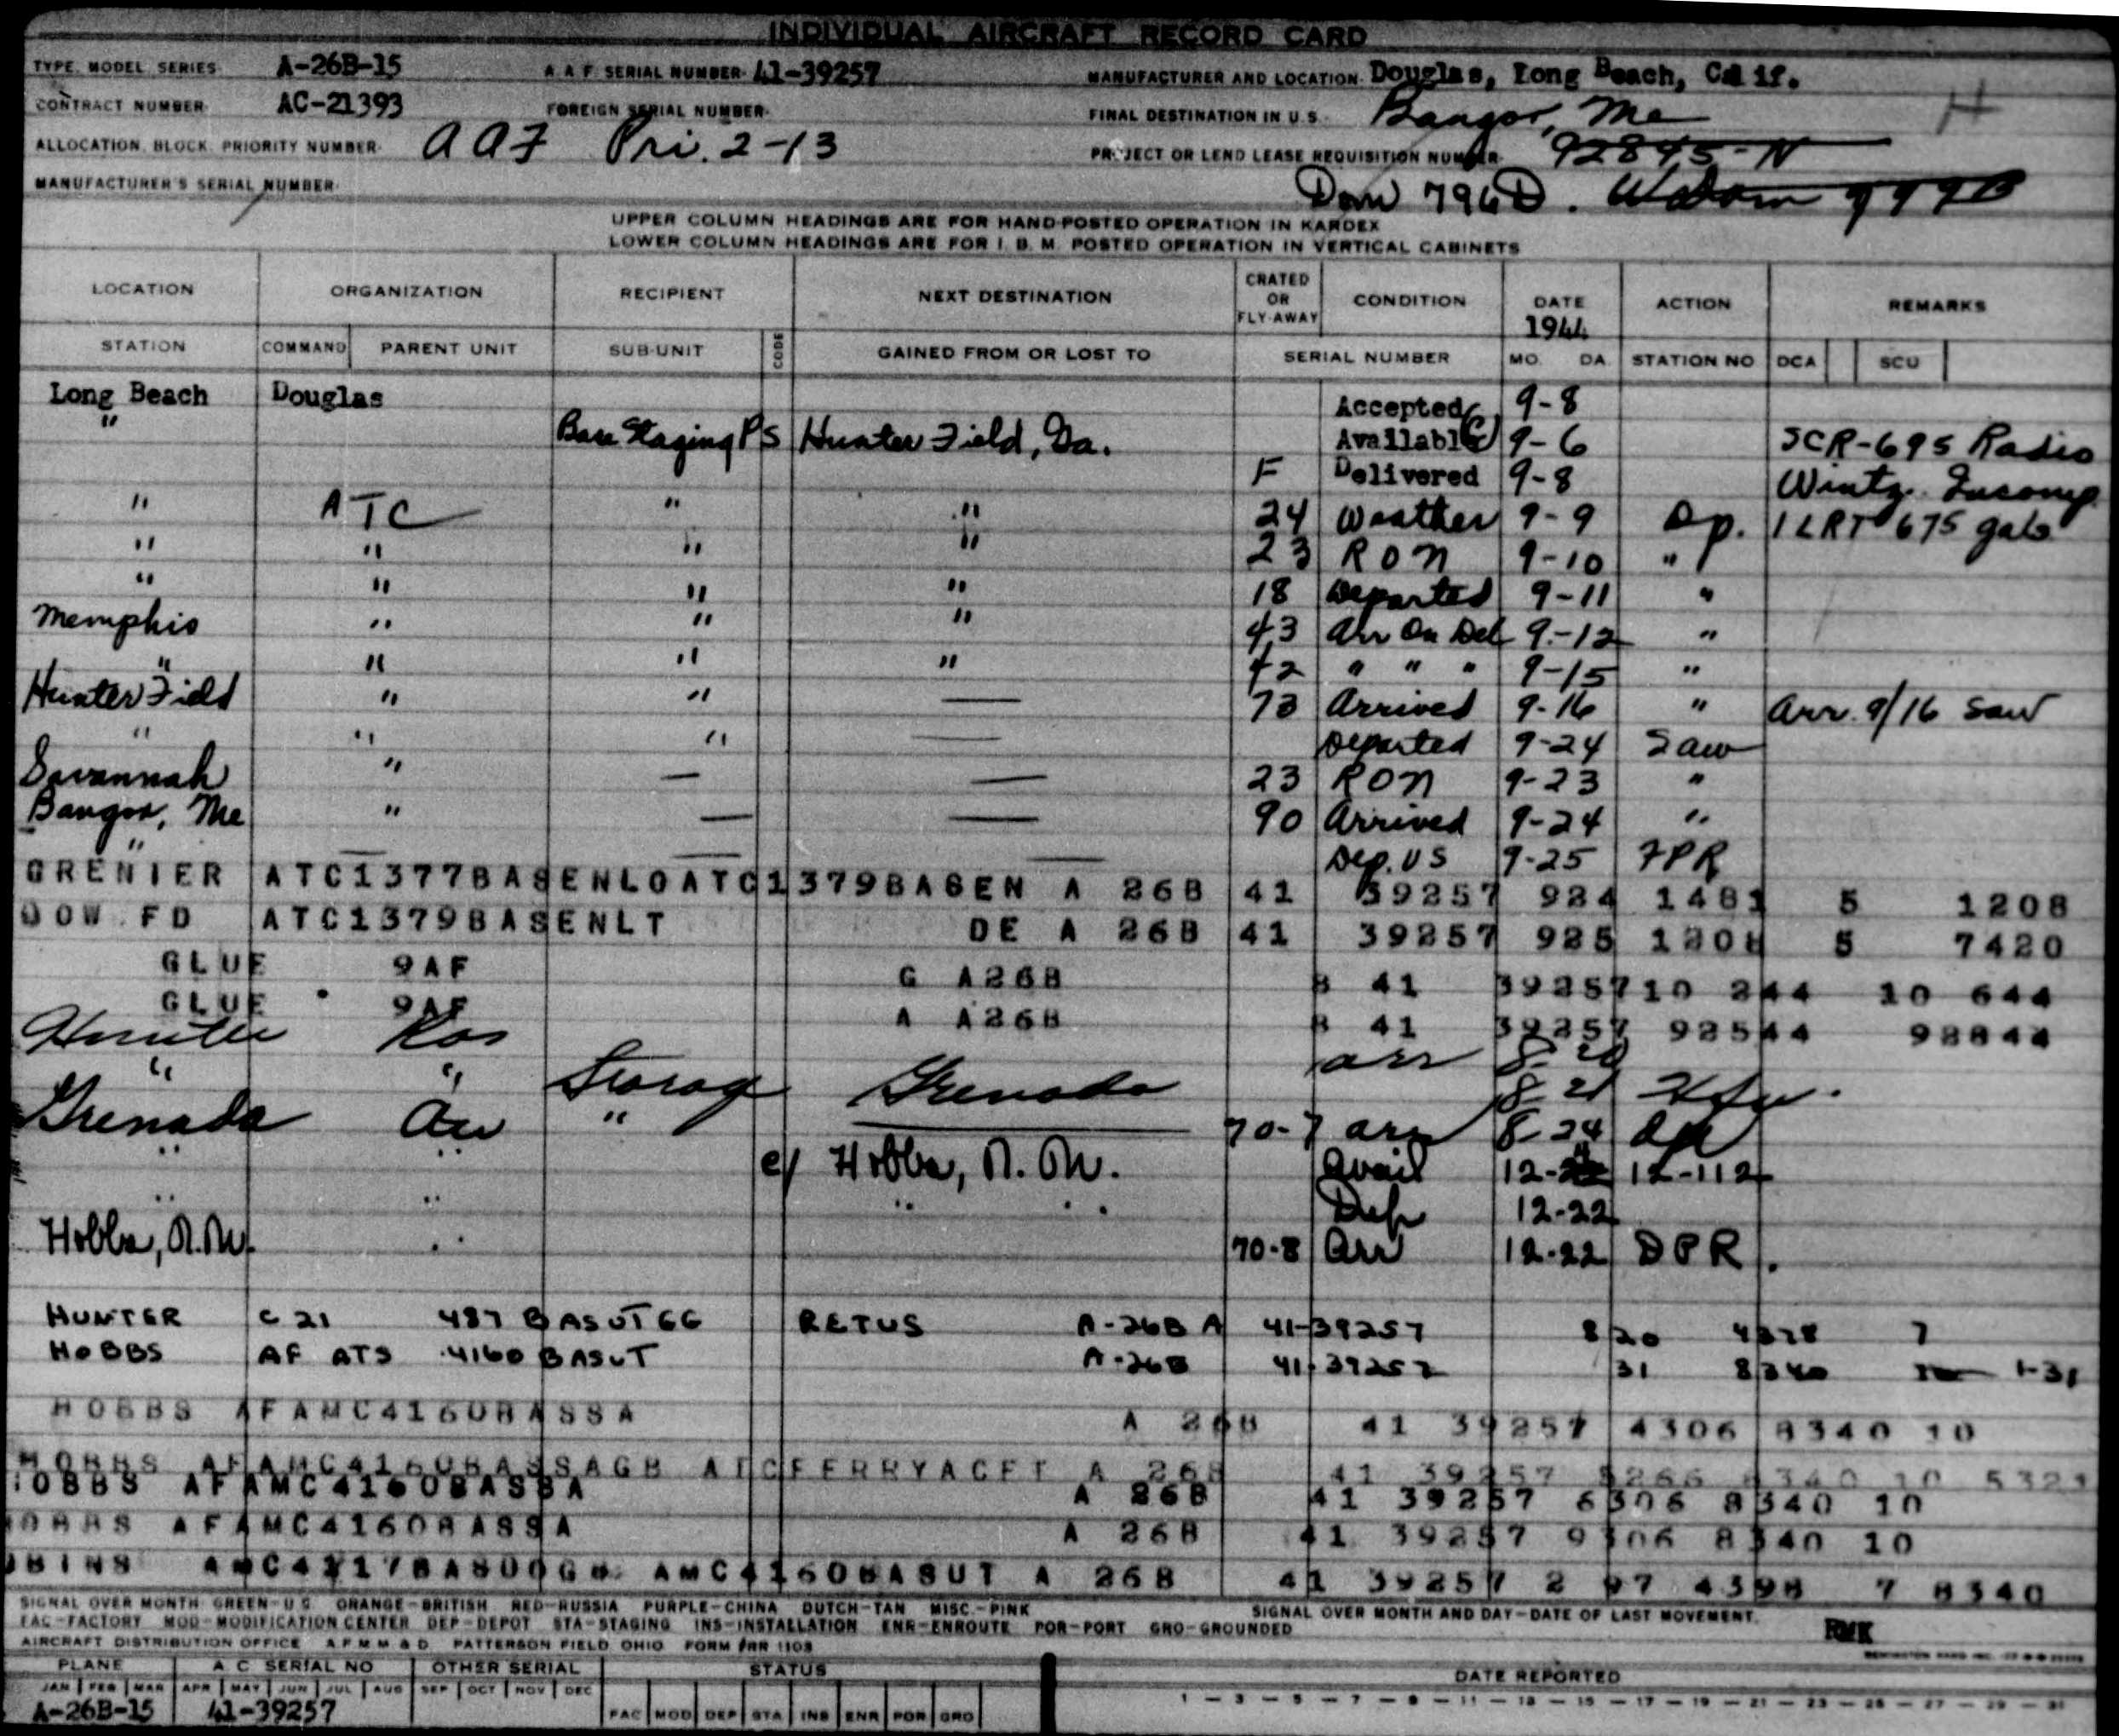 INDIVIDUAL AIRCRAFT RECORD CARD
TYPE, MODEL, SERIES A-26B-15 A A F SERIAL NUMBER 41-39257 MANUFACTURER AND LOCATION Douglas, Long Beach, Calif.
CONTRACT NUMBER AC-21393 FOREIGN SERIAL NUMBER FINAL DESTINATION IN U.S. Bangor, Me H
ALLOCATION, BLOCK, PRIORITY NUMBER AAF Pri. 2-13 PROJECT OR LEND LEASE REQUISITION NUMBER 92845-N
MANUFACTURER'S SERIAL NUMBER Dom 796D.
UPPER COLUMN HEADINGS ARE FOR HAND-POSTED OPERATION IN KARDEX
LOWER COLUMN HEADINGS ARE FOR I. B. M. POSTED OPERATION IN VERTICAL CABINETS
LOCATION ORGANIZATION RECIPIENT NEXT DESTINATION CRATED OR FLY-AWAY CONDITION DATE 1944 ACTION REMARKS
STATION COMMAND PARENT UNIT SUB-UNIT CODE GAINED FROM OR LOST TO SERIAL NUMBER MO. DA. STATION NO DCA SCU
Long Beach Douglas Accepted 9-8
" Base Staging PS Hunter Field, Ga. Available 9-6 SCR-695 Radio
F Delivered 9-8 Wintz. Incomp
" ATC " " 24 Weather 9-9 Op. 1 LRT 675 gals
" " " " 23 RON 9-10 "
" " " " 18 Departed 9-11 "
Memphis " " " 43 Arr On Del 9-12 "
" " " " 42 " " " 9-15 "
Hunter Field " " — 73 Arrived 9-16 " Arr. 9/16 Saw
" " " — Departed 9-24 Saw
Savannah " — — 23 RON 9-23 "
Bangor, Me " — — 90 Arrived 9-24 "
" — — — Dep. US 9-25 FPR
GRENIER ATC1377BASENLOATC1379BASEN A 26B 41 39257 924 1481 5 1208
DOW FD ATC1379BASENLT DE A 26B 41 39257 925 1208 5 7420
GLUE 9AF G A26B B 41 39257 10 244 10 644
GLUE 9AF A A26B B 41 39257 92544 92844
Hunter arr 8-20
" " Storag Grenada 8-21
Grenada " 70-7 arr 8-24
" " c/ Hobbs, N. M. Avail 12-112
" " " " Dep 12-22
Hobbs, N.M. " 70-8 Arr 12-22 DPR.
HUNTER C 21 487 BASUTGG RETUS A-26B A 41-39257 8 20 4378 7
HOBBS AF ATS 4160 BASUT A-26B 41-39257 31 8340 1-31
HOBBS AFAMC4160BASSA A 26B 41 39257 4306 8340 10
HOBBS AFAMC4160BASSAGB ATCFERRYACFT A 26B 41 39257 5266 8340 10 5321
HOBBS AFAMC4160BASSA A 26B 41 39257 6306 8340 10
HOBBS AFAMC4160BASSA A 26B 41 39257 9306 8340 10
AMC4160BASUT A 26B 41 39257 2 97 4398 7 8340
SIGNAL OVER MONTH GREEN-U S ORANGE-BRITISH RED-RUSSIA PURPLE-CHINA DUTCH-TAN MISC.-PINK SIGNAL OVER MONTH AND DAY-DATE OF LAST MOVEMENT.
FAC-FACTORY MOD-MODIFICATION CENTER DEP-DEPOT STA-STAGING INS-INSTALLATION ENR-ENROUTE POR-PORT GRO-GROUNDED RMK
AIRCRAFT DISTRIBUTION OFFICE A.F.M.M & D PATTERSON FIELD OHIO FORM #RR 1103
PLANE A C SERIAL NO OTHER SERIAL STATUS DATE REPORTED
JAN FEB MAR APR MAY JUN JUL AUG SEP OCT NOV DEC
1 — 3 — 5 — 7 — 9 — 11 — 13 — 15 — 17 — 19 — 21 — 23 — 25 — 27 — 29 — 31
A-26B-15 41-39257 FAC MOD DEP STA INS ENR POR GRO